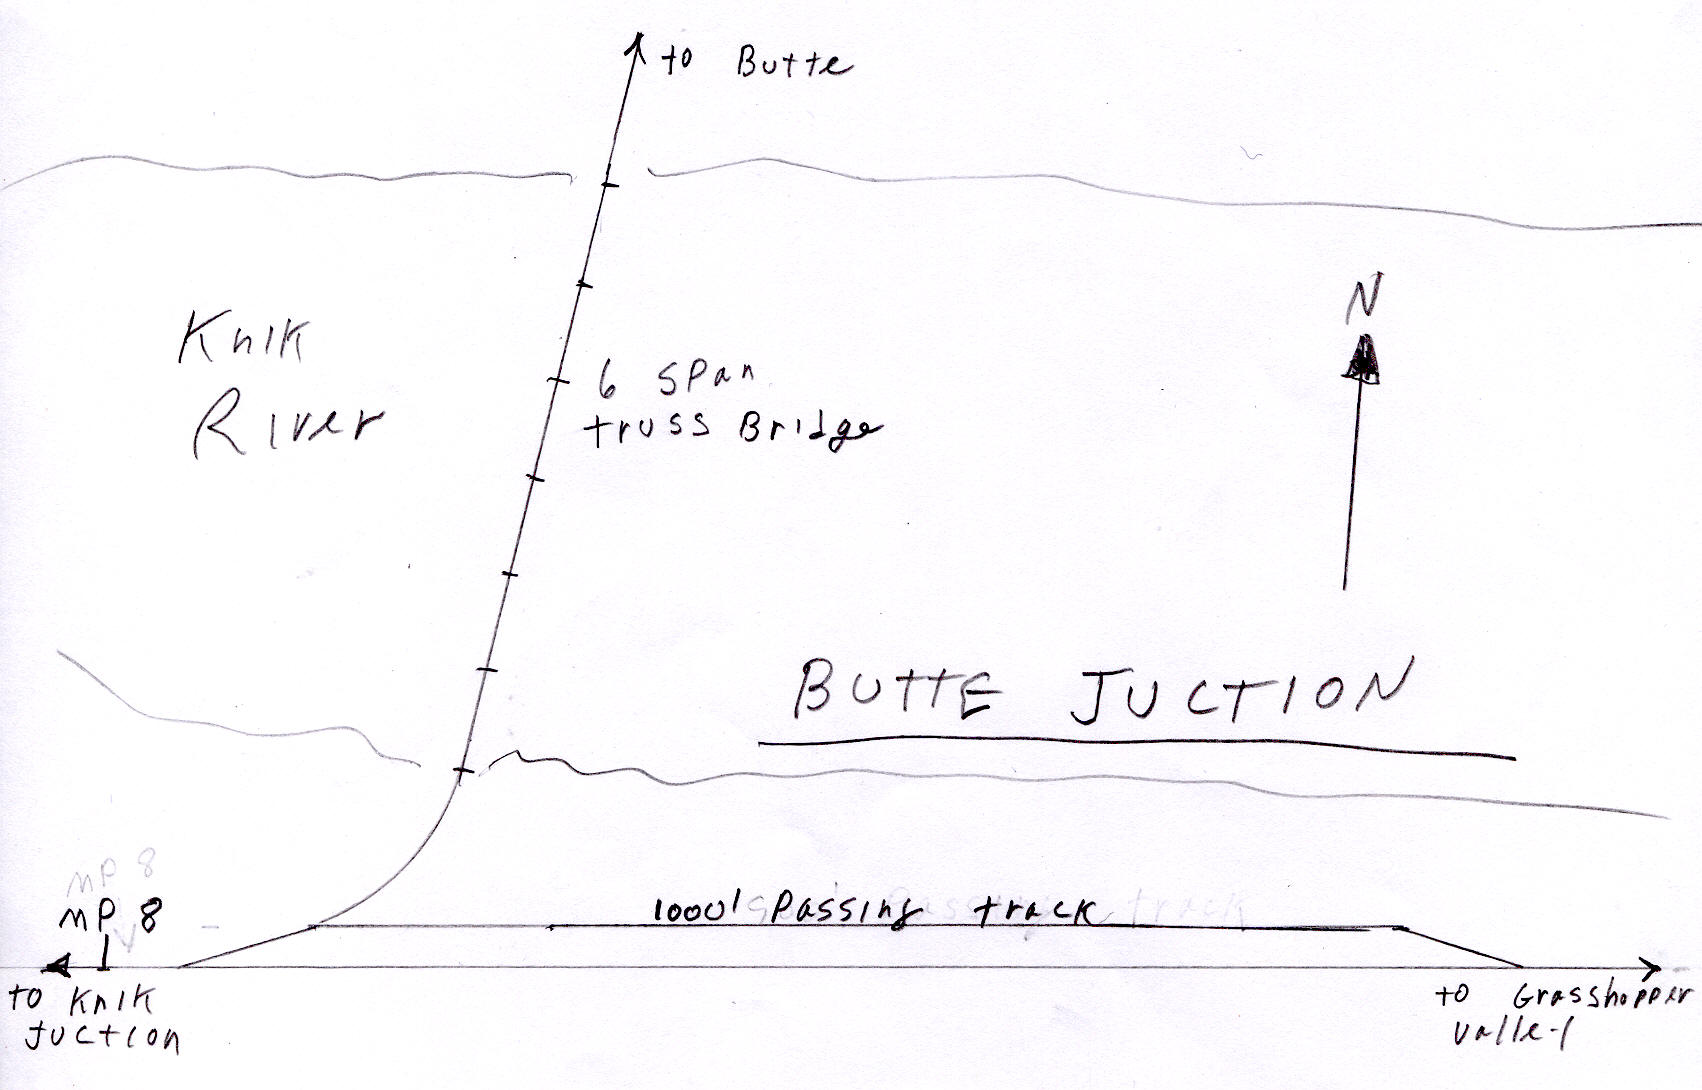 to Butte
N
Knik
River
6 span
truss Bridge
BUTTE JUCTION
MP 8
MP 8
1000' Passing track
to Knik
Juction
to Grasshopper
valley